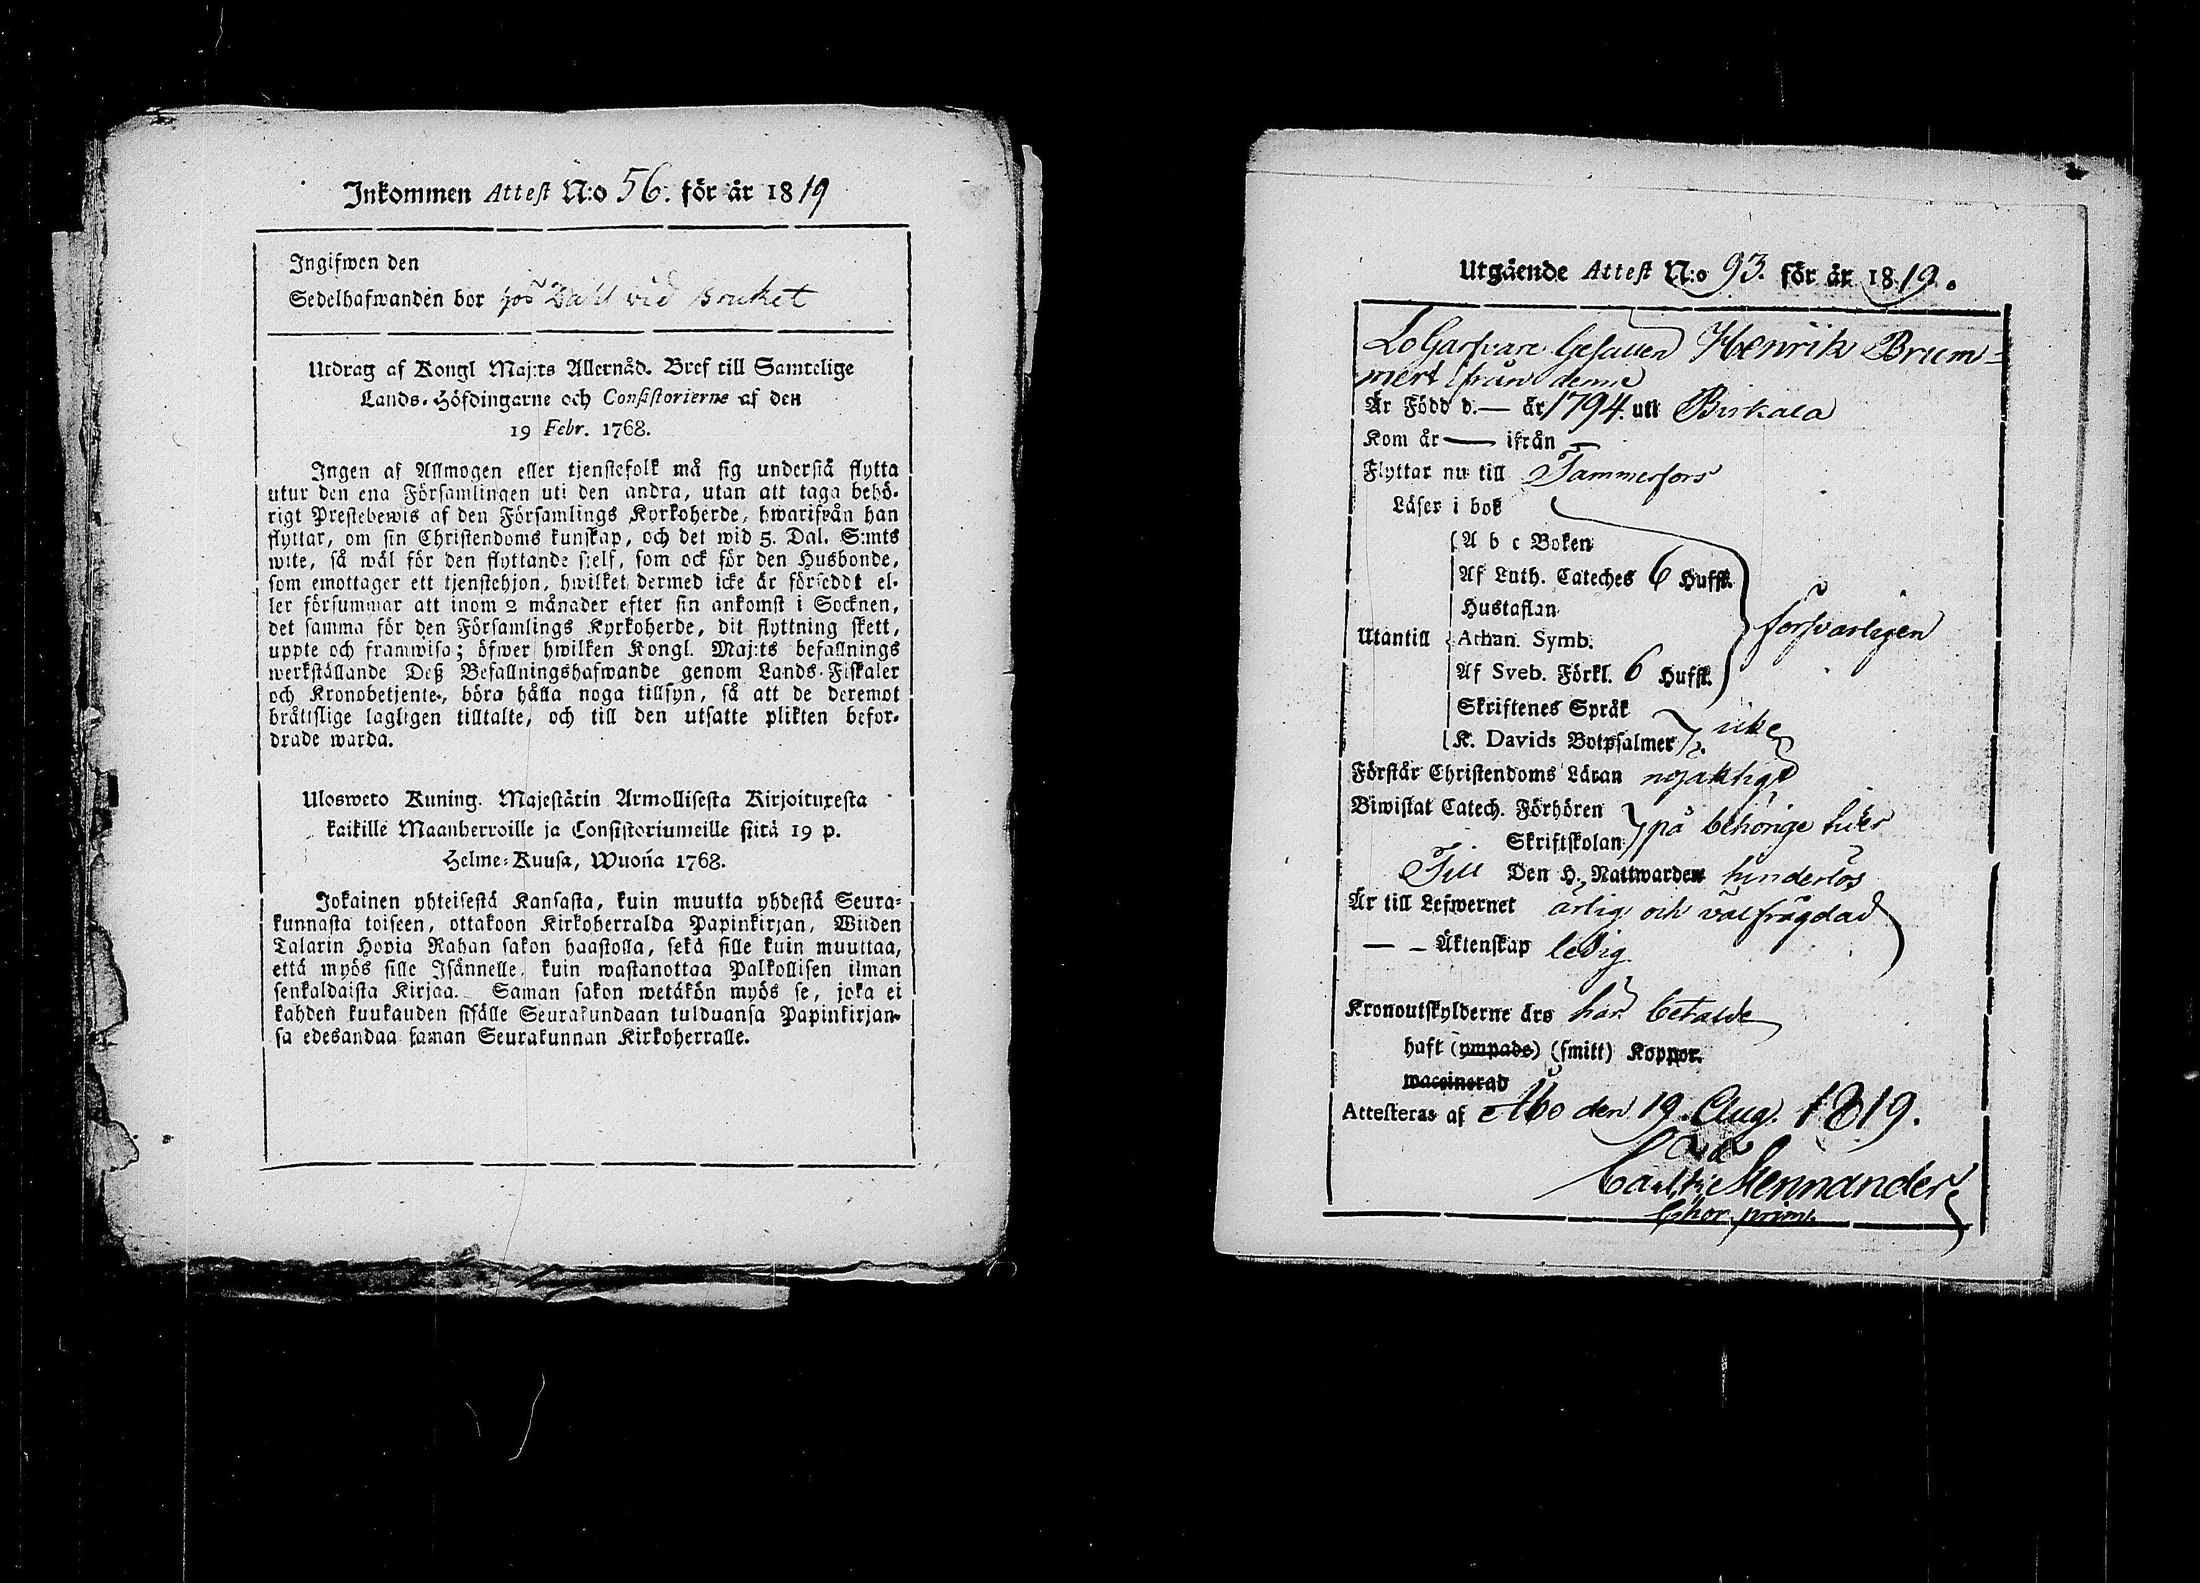 Inkommen Attest N:o 56. för år 1819
Ingifwen den
Sedelhafwanden bor hos Dahl vid Bruket
Utdrag af Kongl Maj:ts Allernåd. Bref till Samtelige
Lands-Höfdingarne och Consistorierne af den
19 Febr. 1768.
Ingen af Allmogen eller tjenstefolk må sig understå flytta
utur den ena Församlingen uti den andra, utan att taga behö-
rigt Prestebewis af den Församlings Kyrkoherde, hwarifrån han
flyttar, om sin Christendoms kunskap, och det wid 5. Dal. S:mts
wite, så wäl för den flyttande sjelf, som ock för den Husbonde,
som emottager ett tjenstehjon, hwilket dermed icke är förseddt el-
ler försummar att inom 2 månader efter sin ankomst i Socknen,
det samma för den Församlings Kyrkoherde, dit flyttning skett,
uppte och framwisa; öfwer hwilken Kongl. Maj:ts befallnings
werkställande Deß Befallningshafwande genom Lands-Fiskaler
och Kronobetjente, böra hålla noga tillsyn, så att de deremot
bråttslige lagligen tilltalte, och till den utsatte plikten befor-
drade warda.
Ulosweto Kuning. Majestätin Armollisesta Kirjoituxesta
kaikille Maanherroille ja Consistoriumeille siitä 19 p.
Helme-Kuusa, Wuoña 1768.
Jokainen yhteisestä Kansasta, kuin muutta yhdestä Seura-
kunnasta toiseen, ottakoon Kirkoherralda Papinkirjan, Wiiden
Talarin Hopia Rahan sakon haastolla, sekä sille kuin muuttaa,
että myös sille Isännelle, kuin wastanottaa Palkollisen ilman
senkaldaista Kirjaa. Saman sakon wetäkön myös se, joka ei
kahden kuukauden sisälle Seurakundaan tulduansa Papinkirjan-
sa edesandaa saman Seurakunnan Kirkoherralle.
Utgående Attest N:o 93. för år 1819.
Logarfvare Gesällen Henrik Brum=
mert ifrån denne
Är Född d. — år 1794. uti Birkala
Kom år — ifrån —
Flyttar nu till Tammerfors
Läser i bok
A b c Boken
Af Luth. Cateches 6 Hufst.
Hustaflan
Utantill Athan. Symb. försvarligen
Af Sveb. Förkl. 6 Hufst.
Skriftenes Språk
K. Davids Botpsalmer icke
Förstår Christendoms Läran nöjaktigt
Biwistat Catech. Förhören
Skriftskolan på behörige tider
Till Den H. Nattwarden hinderlös
Är till Lefwernet ärlig och välfrägdad
— – Äktenskap ledig
Kronoutskylderne äro här betalde
haft (ympade) (smitt) Koppor.
waccinerad
Attesteras af Åbo den 19. Aug. 1819.
Mennander